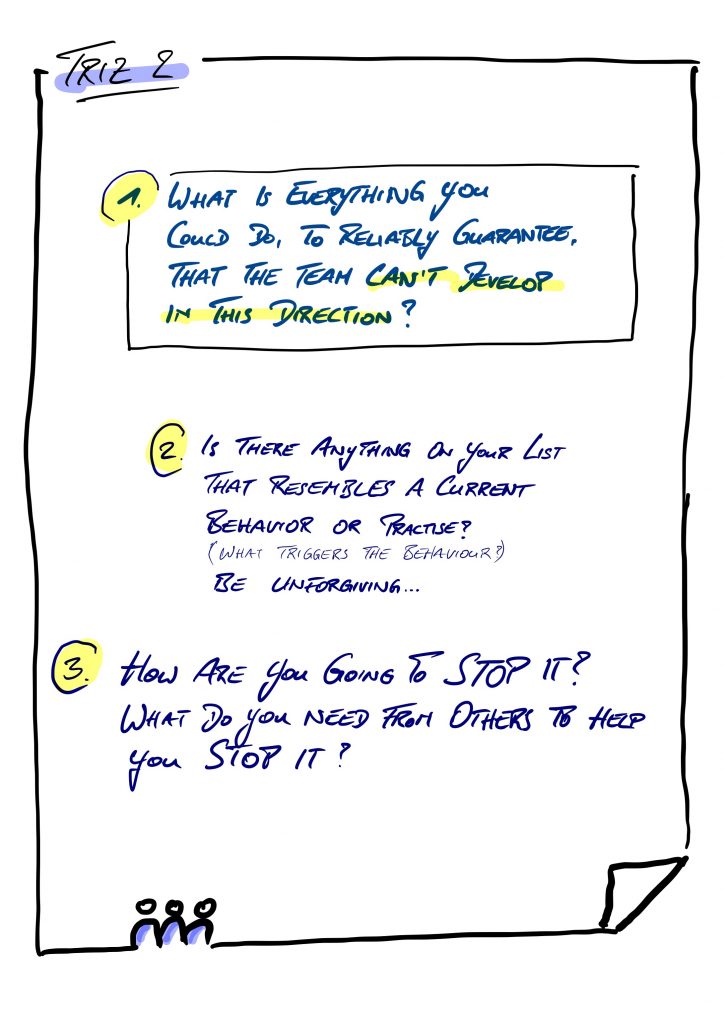 TRIZ 2
1. WHAT IS EVERYTHING YOU
COULD DO, TO RELIABLY GUARANTEE,
THAT THE TEAM CAN'T DEVELOP
IN THIS DIRECTION?
2. IS THERE ANYTHING ON YOUR LIST
THAT RESEMBLES A CURRENT
BEHAVIOR OR PRACTISE?
(WHAT TRIGGERS THE BEHAVIOUR?)
BE UNFORGIVING...
3. HOW ARE YOU GOING TO STOP IT?
WHAT DO YOU NEED FROM OTHERS TO HELP
YOU STOP IT?